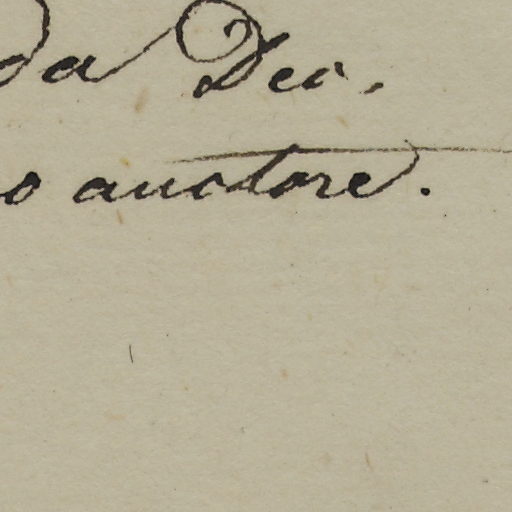 da Deo,
o auctore.